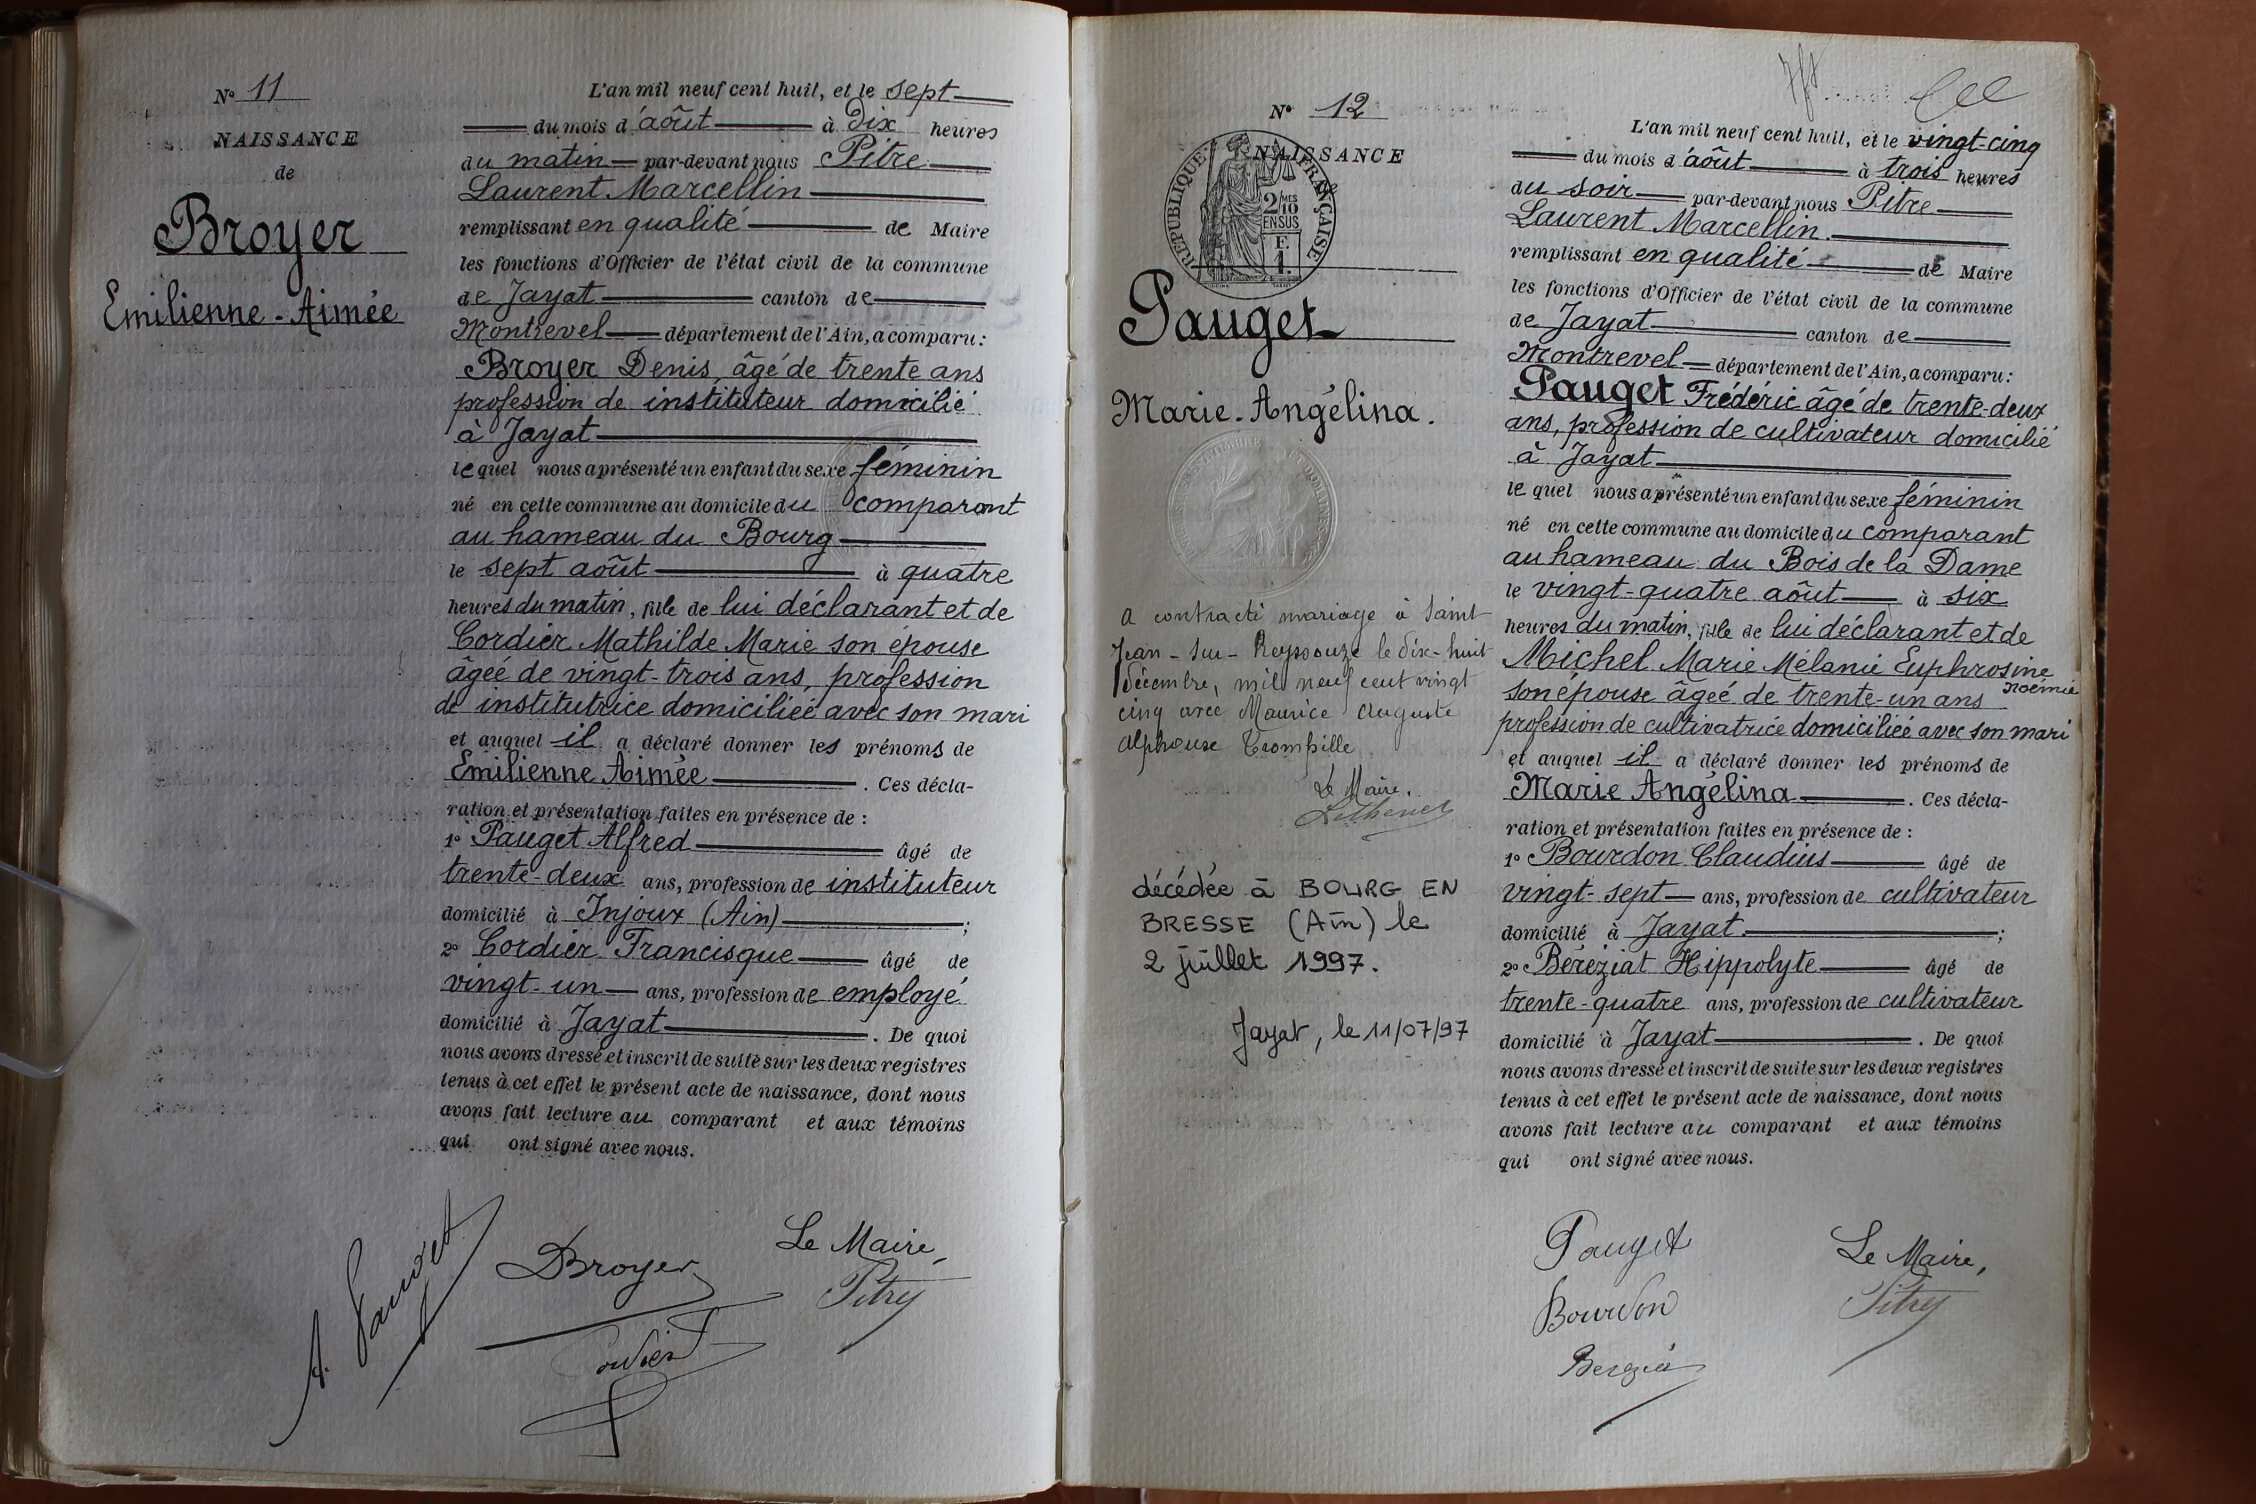 N° 11
NAISSANCE
de
Broyer
Emilienne-Aimée
L'an mil neuf cent huit, et le sept
du mois d'août à dix heures
du matin par-devant nous Pitre
Laurent Marcellin
remplissant en qualité de Maire
les fonctions d'Officier de l'état civil de la commune
de Jayat canton de
Montrevel département de l'Ain, a comparu :
Broyer Denis, âgé de trente ans
profession de instituteur domicilié
à Jayat
lequel nous a présenté un enfant du sexe féminin
né en cette commune au domicile du comparant
au hameau du Bourg
le sept août à quatre
heures du matin, fille de lui déclarant et de
Cordier Mathilde Marie son épouse
âgée de vingt-trois ans, profession
de institutrice domiciliée avec son mari
et auquel il a déclaré donner les prénoms de
Emilienne Aimée . Ces décla-
ration et présentation faites en présence de :
1° Pauget Alfred âgé de
trente-deux ans, profession de instituteur
domicilié à Injoux (Ain) ;
2° Cordier Francisque âgé de
vingt-un ans, profession de employé
domicilié à Jayat . De quoi
nous avons dressé et inscrit de suite sur les deux registres
tenus à cet effet le présent acte de naissance, dont nous
avons fait lecture au comparant et aux témoins
qui ont signé avec nous.
A. Pauget
Broyer
Cordier
Le Maire,
Pitre
N° 12
NAISSANCE
de
RÉPUBLIQUE FRANÇAISE
2/10 MES
EN SUS
F.
1.
Pauget
Marie-Angélina.
A contracté mariage à Saint
Jean-sur-Reyssouze le dix-huit
décembre, mil neuf cent vingt
cinq avec Maurice Auguste
Alphonse Trompille
Le Maire.
décédée à BOURG EN
BRESSE (Ain) le
2 juillet 1997.
Jayat, le 11/07/97
L'an mil neuf cent huit, et le vingt-cinq
du mois d'août à trois heures
du soir par-devant nous Pitre
Laurent Marcellin.
remplissant en qualité de Maire
les fonctions d'Officier de l'état civil de la commune
de Jayat canton de
Montrevel département de l'Ain, a comparu :
Pauget Frédéric âgé de trente-deux
ans, profession de cultivateur domicilié
à Jayat
lequel nous a présenté un enfant du sexe féminin
né en cette commune au domicile du comparant
au hameau du Bois de la Dame
le vingt-quatre août à six
heures du matin, fille de lui déclarant et de
Michel Marie Mélanie Euphrosine
Noémie
son épouse âgée de trente-un ans
profession de cultivatrice domiciliée avec son mari
et auquel il a déclaré donner les prénoms de
Marie Angélina . Ces décla-
ration et présentation faites en présence de :
1° Bourdon Claudius âgé de
vingt-sept ans, profession de cultivateur
domicilié à Jayat. ;
2° Béréziat Hippolyte âgé de
trente-quatre ans, profession de cultivateur
domicilié à Jayat . De quoi
nous avons dressé et inscrit de suite sur les deux registres
tenus à cet effet le présent acte de naissance, dont nous
avons fait lecture au comparant et aux témoins
qui ont signé avec nous.
Pauget
Bourdon
Le Maire,
Pitre